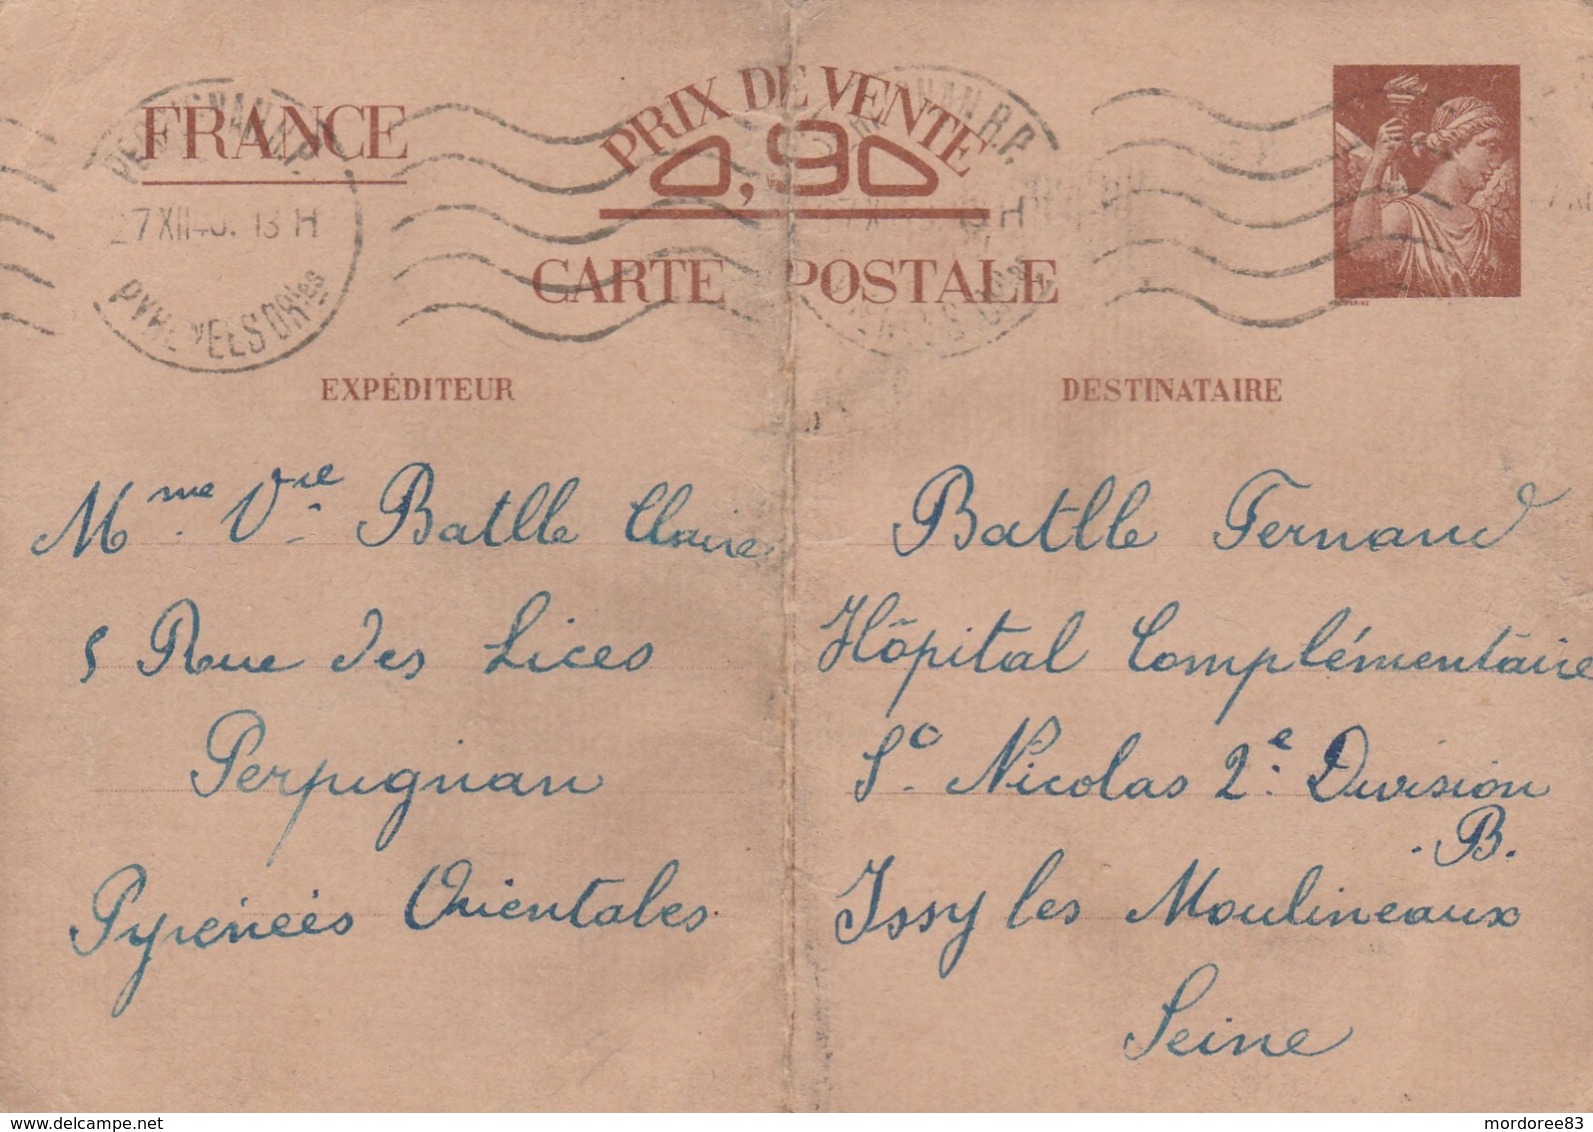 FRANCE
PRIX DE VENTE
0,90
CARTE POSTALE
PERPIGNAN R.P.
27 XII 40. 13 H
PYRENEES ORles
EXPÉDITEUR
Mme Vve Batlle Claire
5 Rue des Lices
Perpignan
Pyrénées Orientales
DESTINATAIRE
Batlle Fernand
Hôpital Complémentaire
St Nicolas 2e Division
B.
Issy les Moulineaux
Seine
mordoree83